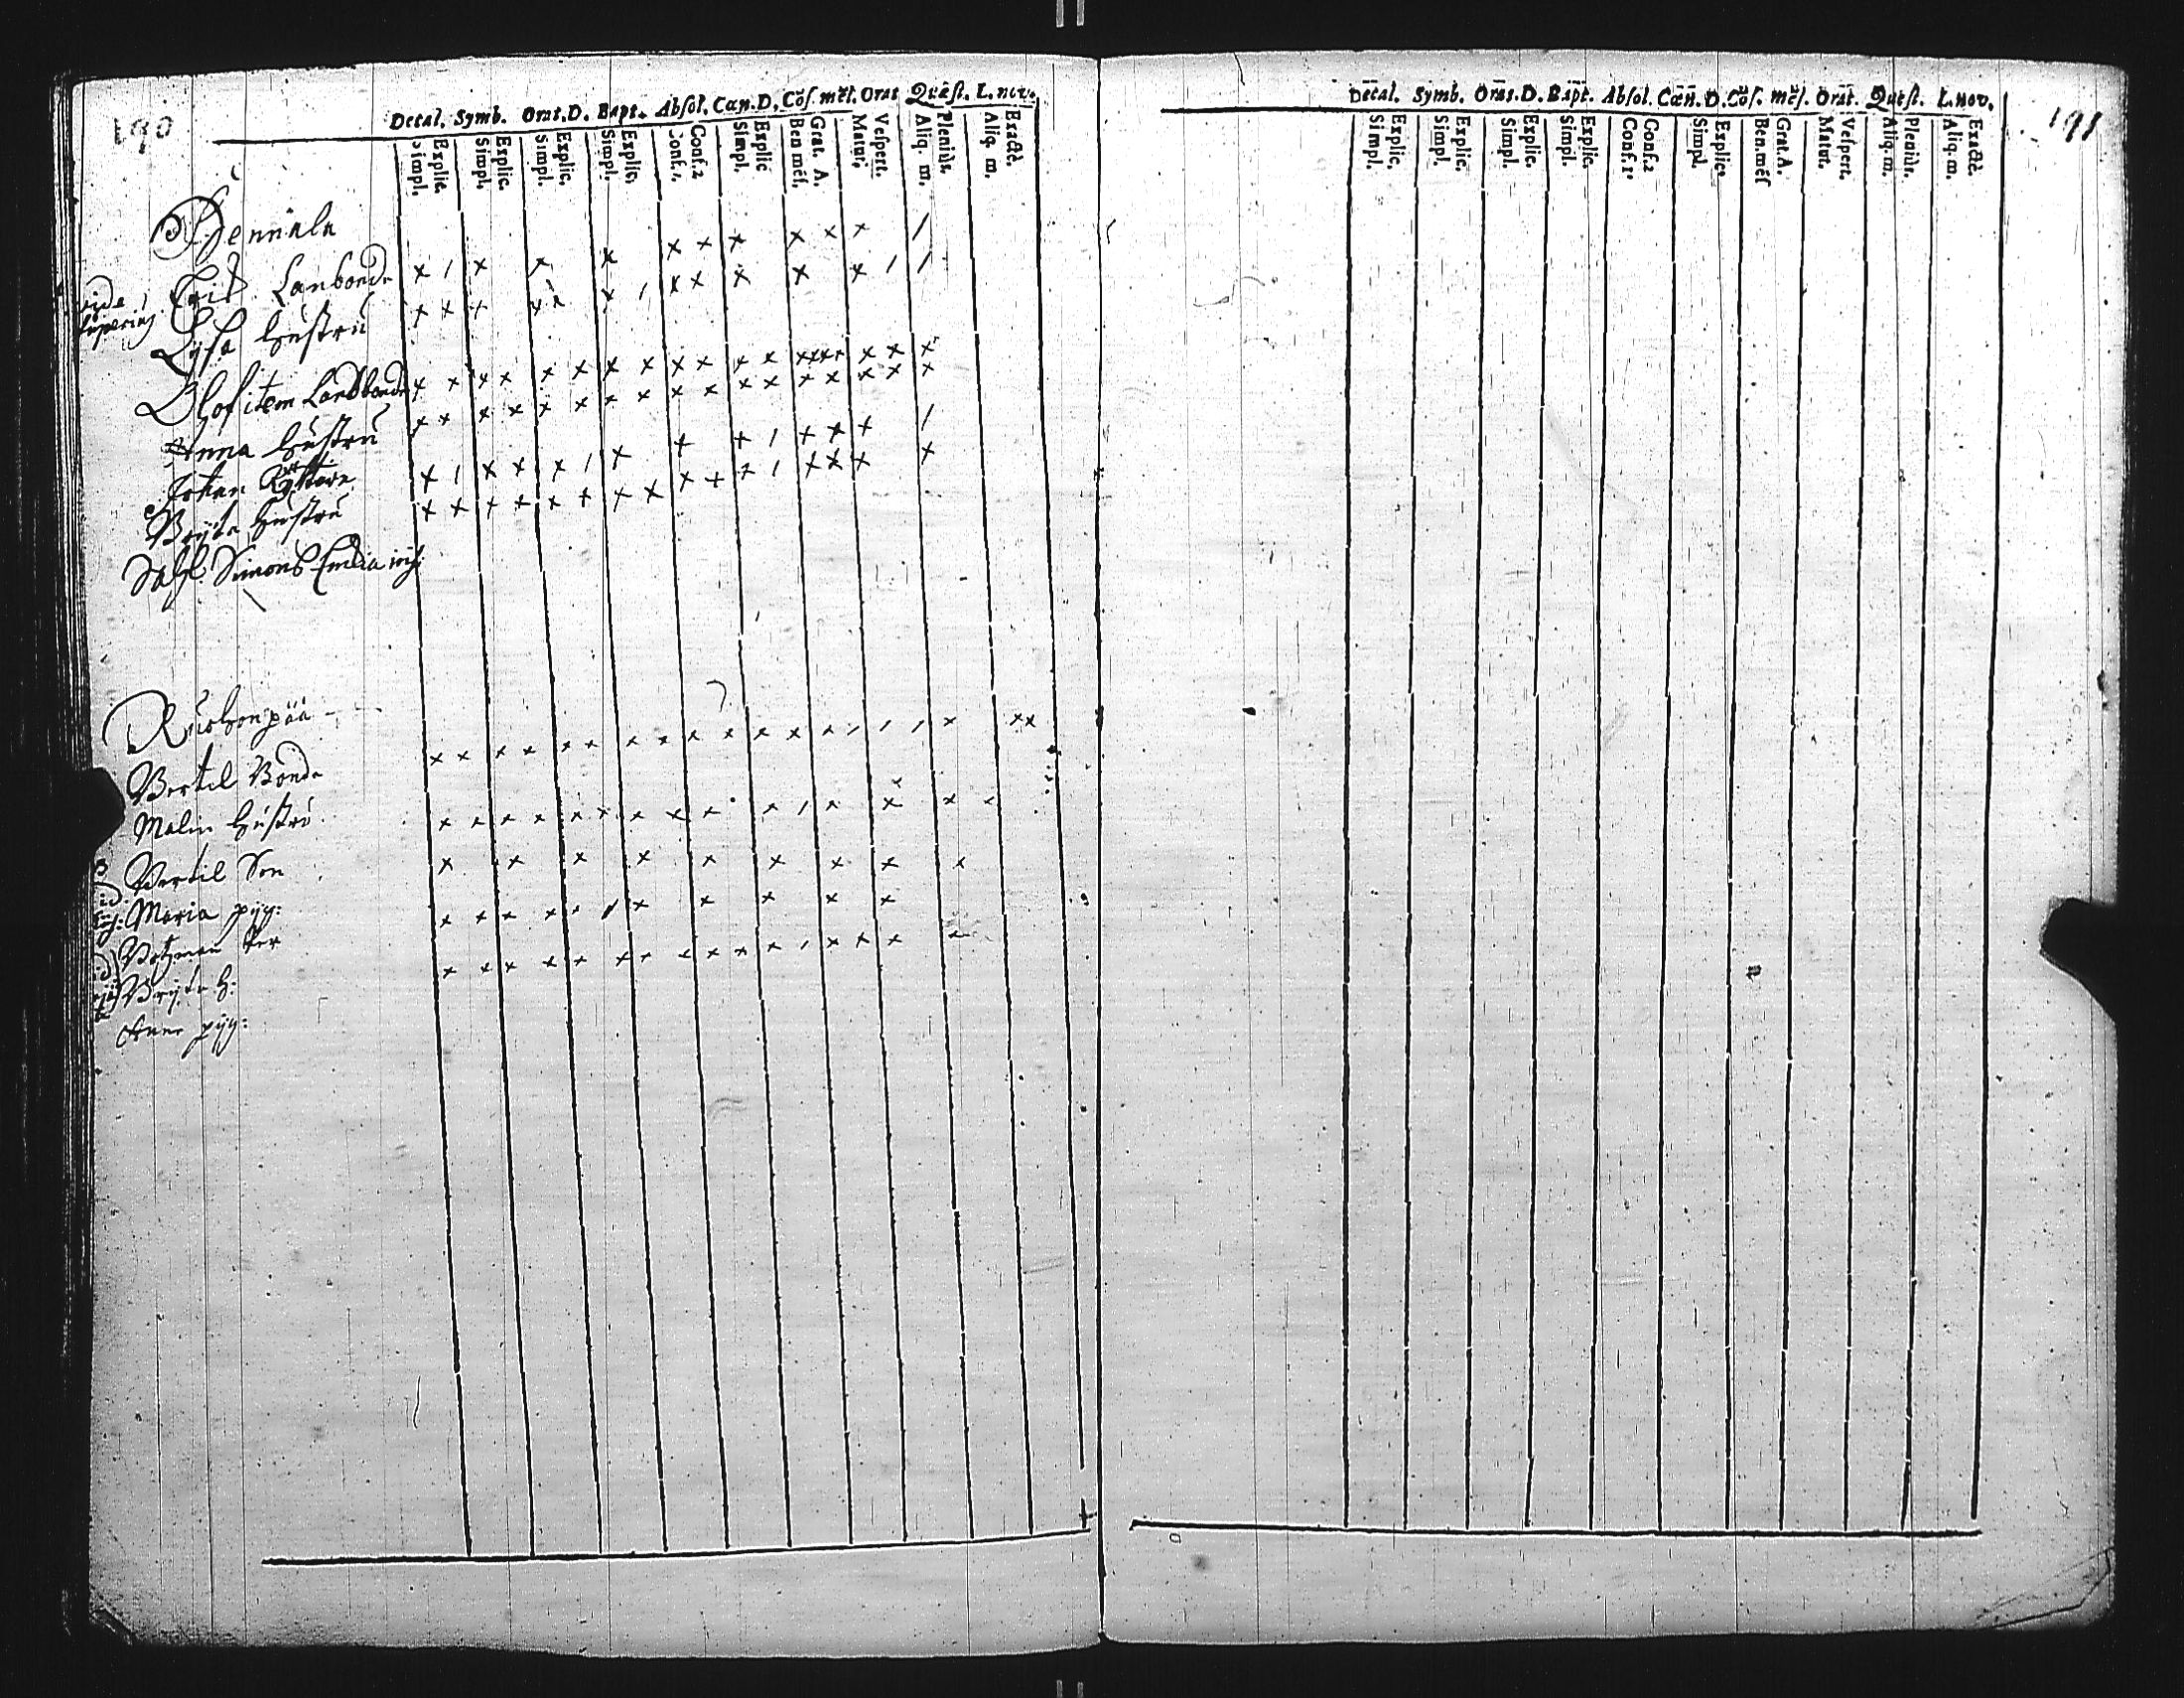 190
Decal. Symb. Orat. D. Bapt. Absol. Cœn. D. Cōs. mēs. Orat Quæst. L. nov.
Simpl. Explic. Simpl. Explic. Simpl. Explic. Simpl. Explic. Conf. 1. Conf. 2 Simpl. Explic Ben mēs. Grat. A. Matut. Vespert. Aliq. m. Pleniùs. Aliq. m. Exactè.
Erik Lanbonde
vide superius
Lysa hustru
Olof item Landbonde
Anna hustru
Johan
Brijta hustru
Sahl. Simons
Ruohonpää
Bertil Bonde
Malin hustru
Bertil Son
Maria pijg:
Brijta h:
Anna pijg:
191
Decal. Symb. Orat. D. Bapt. Absol. Cœn. D. Cōs. mēs. Orat. Quæst. L. nov.
Simpl. Explic. Simpl. Explic. Simpl. Explic. Simpl. Explic. Conf. 1. Conf. 2 Simpl. Explic. Ben. mēs Grat. A. Matut. Vespert. Aliq. m. Pleniùs. Aliq. m. Exactè.